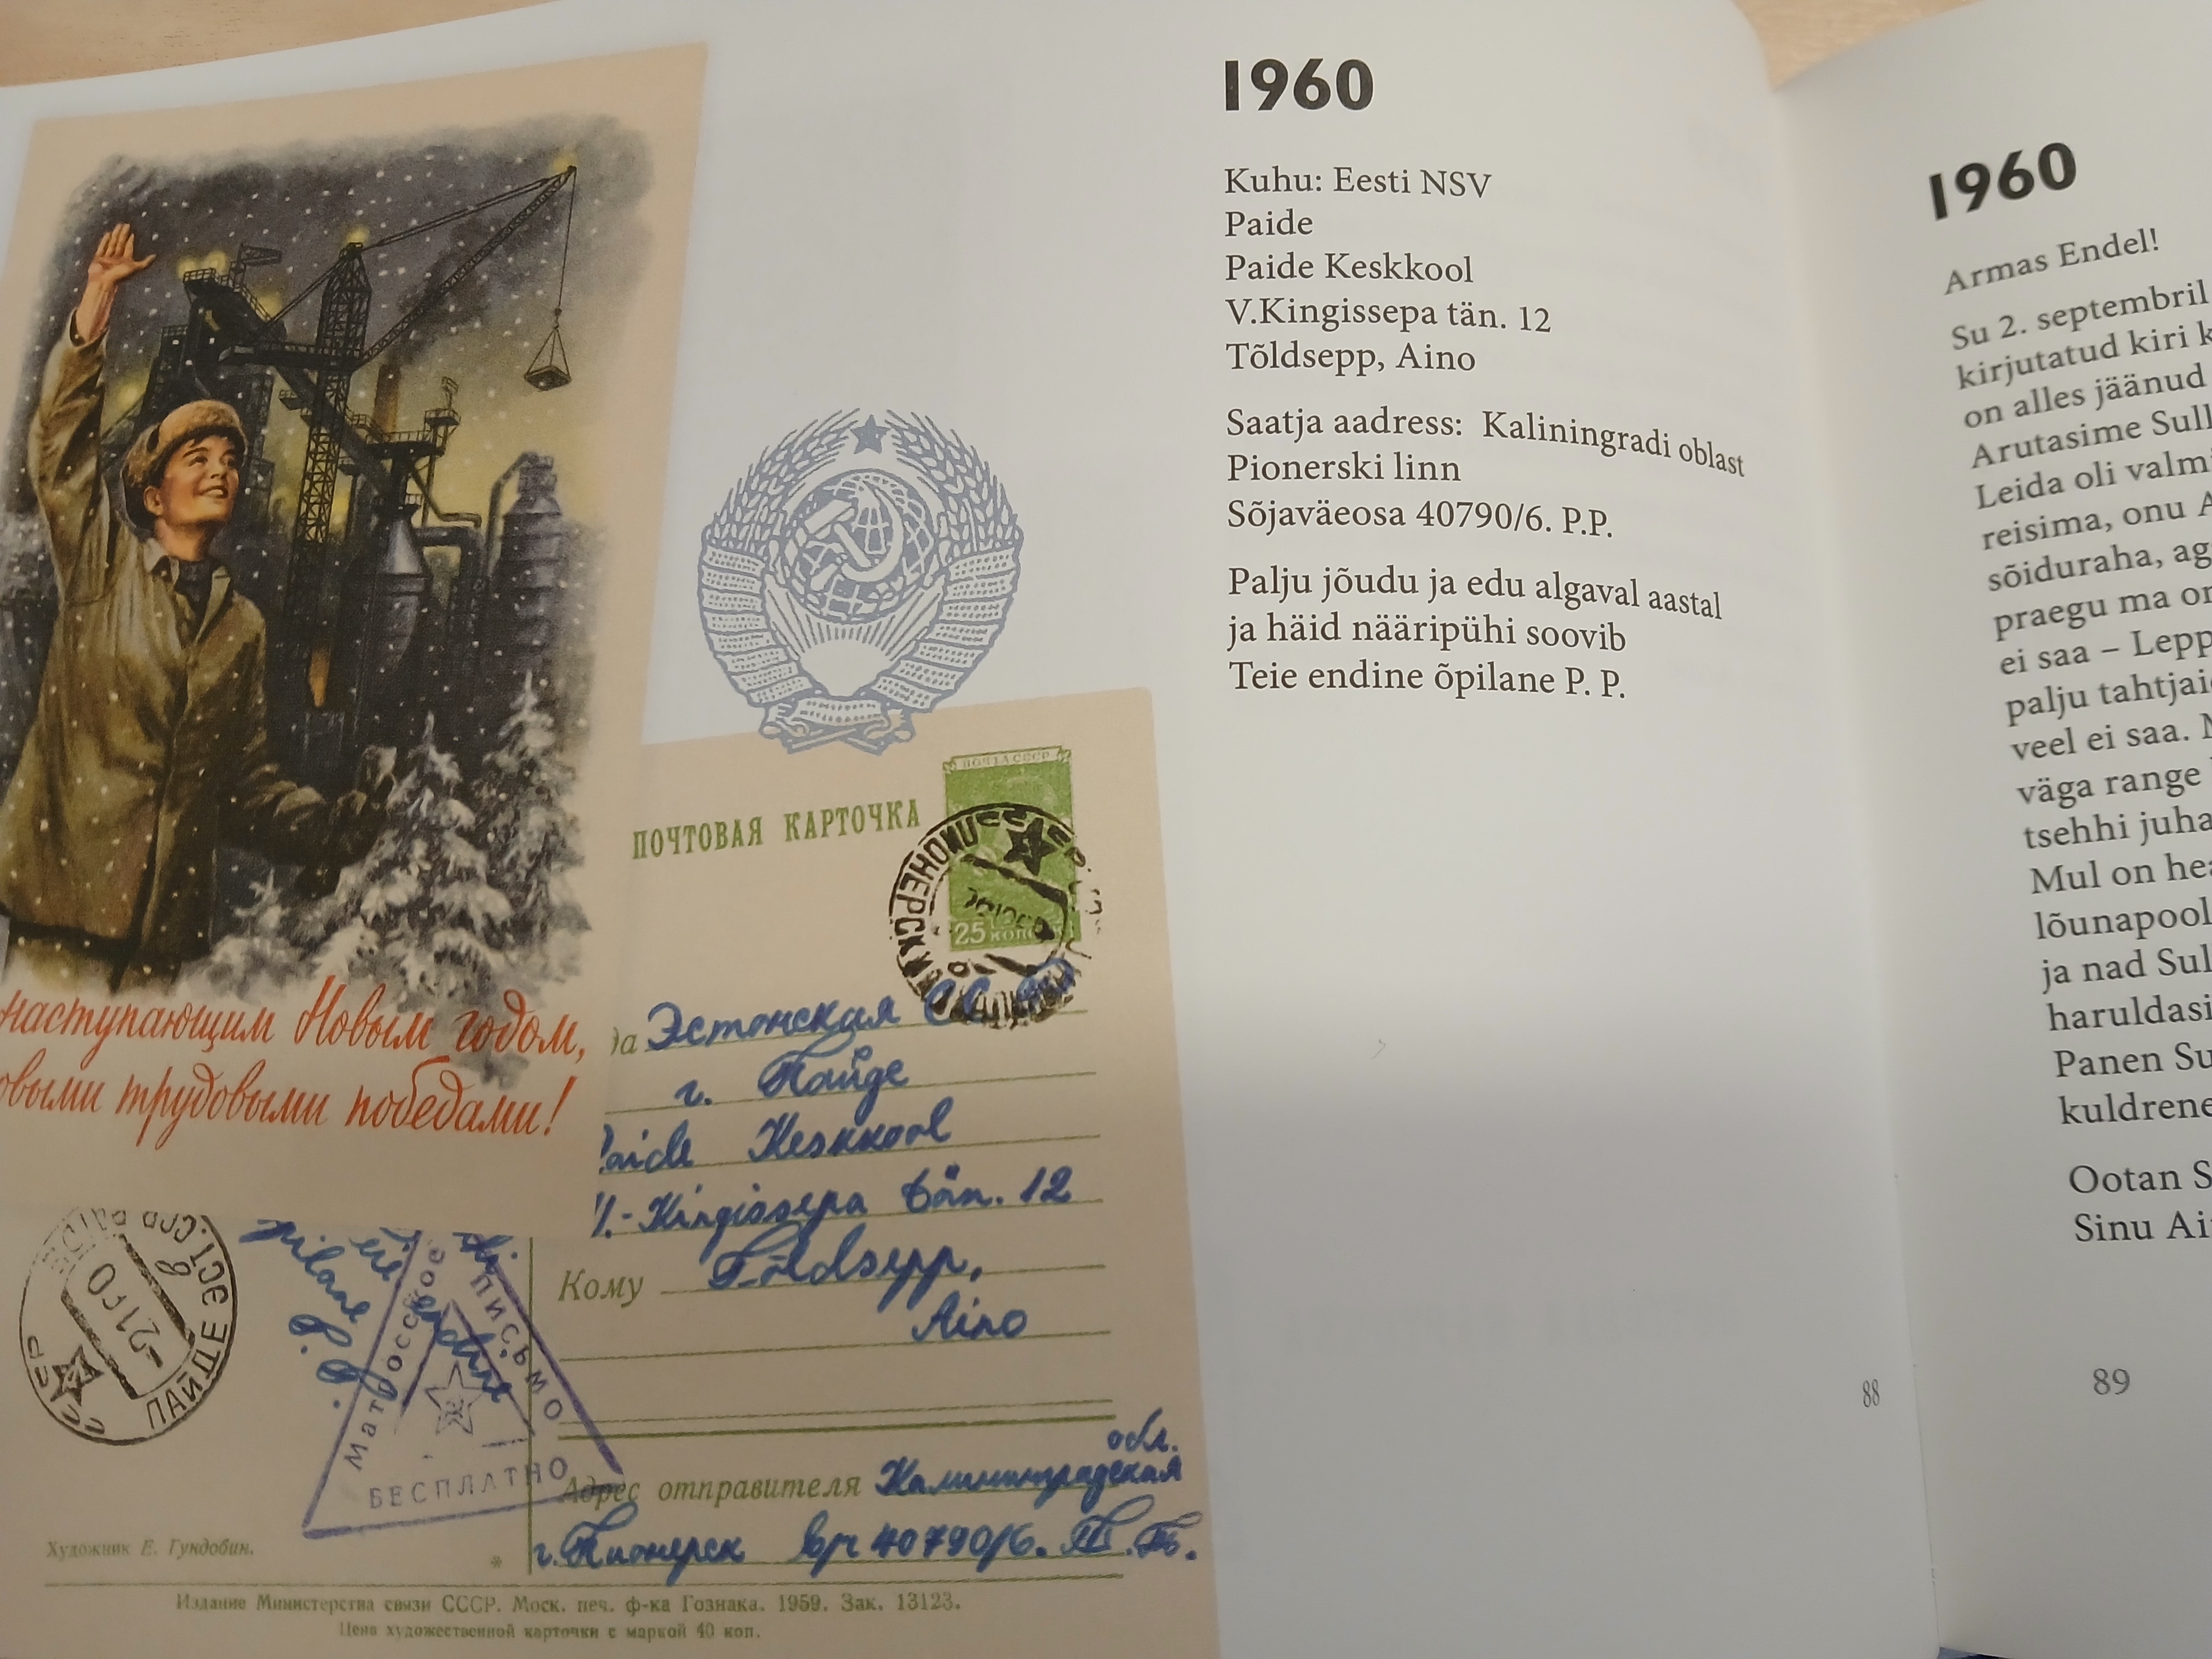 наступающим Новым годом,
трудовыми победами!
ПОЧТОВАЯ КАРТОЧКА
ПОЧТА СССР
25 коп
ПИОНЕРСК
Эстонская
г. Пайде
Keskkool
Kingissepa tän. 12
Кому Tõldsepp,
Aino
P. P.
Матросское
ПИСЬМО
БЕСПЛАТНО
ПАЙДЕ ЭСТ.ССР
2160
обл.
Адрес отправителя Калининградская
г. Пионерск в/ч 40790/6. П.П.
Художник Е. Гундобин.
Издание Министерства связи СССР. Моск. печ. ф-ка Гознака. 1959. Зак. 13123.
Цена художественной карточки с маркой 40 коп.
1960
Kuhu: Eesti NSV
Paide
Paide Keskkool
V.Kingissepa tän. 12
Tõldsepp, Aino
Saatja aadress: Kaliningradi oblast
Pionerski linn
Sõjaväeosa 40790/6. P.P.
Palju jõudu ja edu algaval aastal
ja häid nääripühi soovib
Teie endine õpilane P. P.
88
1960
Armas Endel!
Su 2. septembril
kirjutatud kiri
on alles jäänud
Arutasime
Leida oli
reisima, onu
sõiduraha,
praegu ma
ei saa –
palju
veel ei saa.
väga range
tsehhi
Mul on
lõunapool
ja nad
Panen
Ootan
Sinu
89